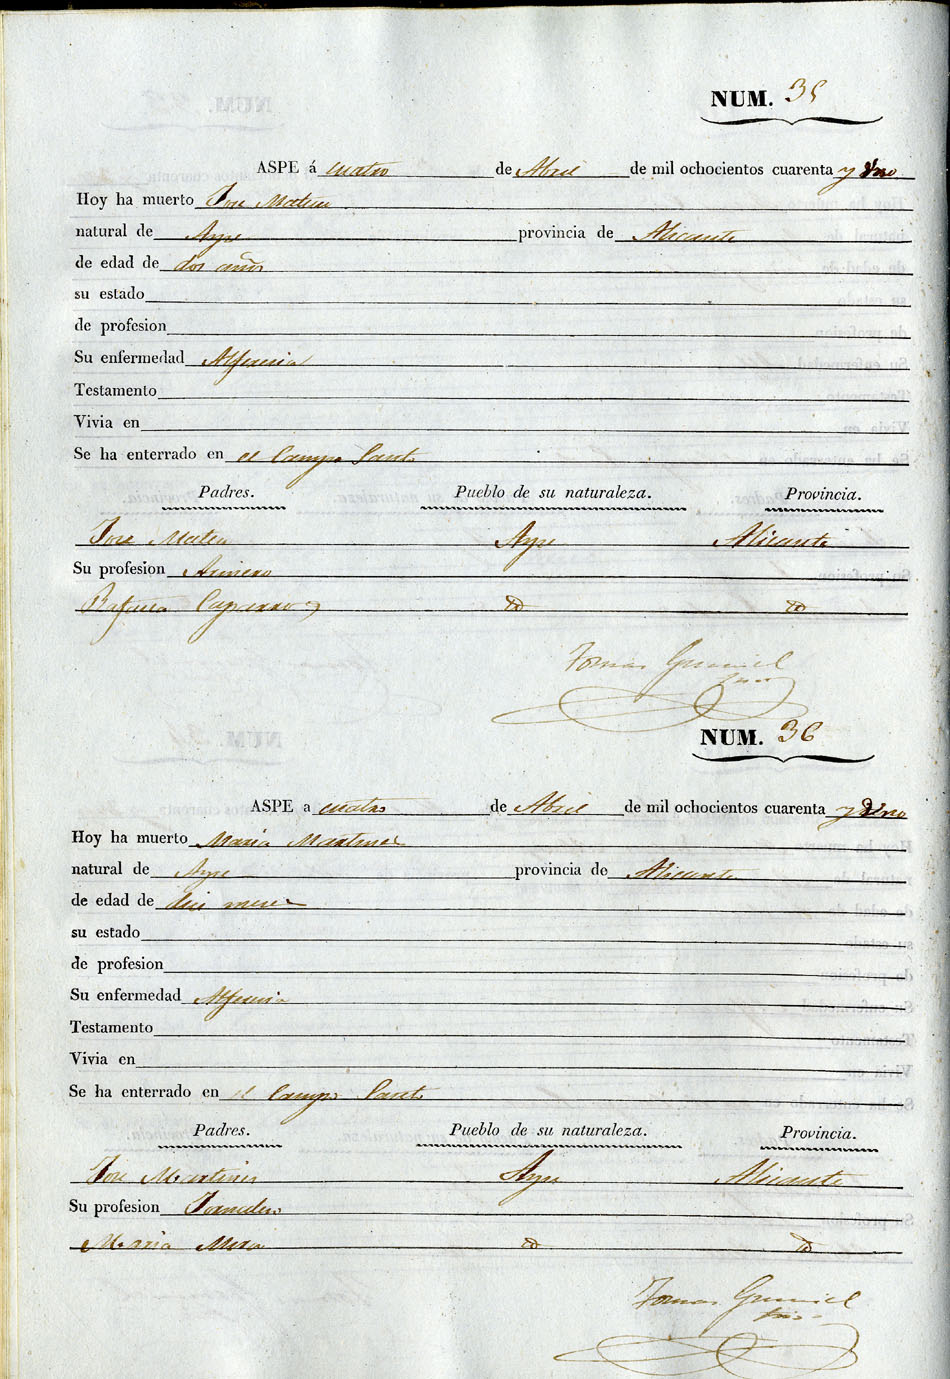 NUM. 35
ASPE á cuatro de Abril de mil ochocientos cuarenta y Uno
Hoy ha muerto Jose Mateu
natural de Aspe provincia de Alicante
de edad de dos años
su estado
de profesion
Su enfermedad Alferecia
Testamento
Vivia en
Se ha enterrado en el Campo Santo
Padres. Pueblo de su naturaleza. Provincia.
Jose Mateu Aspe Alicante
Su profesion Arriero
Rafaela Caparros id id
Tomas
NUM. 36
ASPE a cuatro de Abril de mil ochocientos cuarenta y Uno
Hoy ha muerto Maria Martinez
natural de Aspe provincia de Alicante
de edad de diez meses
su estado
de profesion
Su enfermedad Alferecia
Testamento
Vivia en
Se ha enterrado en el Campo Santo
Padres. Pueblo de su naturaleza. Provincia.
Jose Martinez Aspe Alicante
Su profesion Jornalero
Maria Mira id id
Tomas